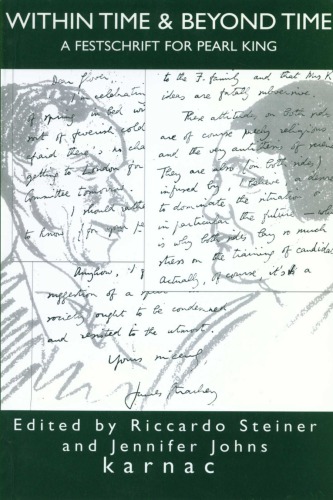 WITHIN TIME & BEYOND TIME
A FESTSCHRIFT FOR PEARL KING
Dear Glover,
I'm celebrating
of spring in bed with
sort of feverish cold
afraid there's no cha
getting to London for
Committee tomorrow
I should rathe
to know (for your
Anyhow, I
suggestion of a
society ought to be condemned
and resisted to the utmost.
Yours sincerely
James Strachey
to the F. family and that Mrs K
ideas are fatally subversive.
These attitudes, on both sides,
are of course purely religious
and the very antithesis of
They are also (on both sides)
infused by, I believe, a desire
to dominate the situation
in particular the future
is why both sides lay so much
stress on the training of candida
Actually, of course, it's a
Edited by Riccardo Steiner
and Jennifer Johns
karnac